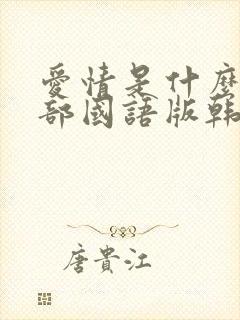 愛情是什麼
部國語版韩
唐貴江